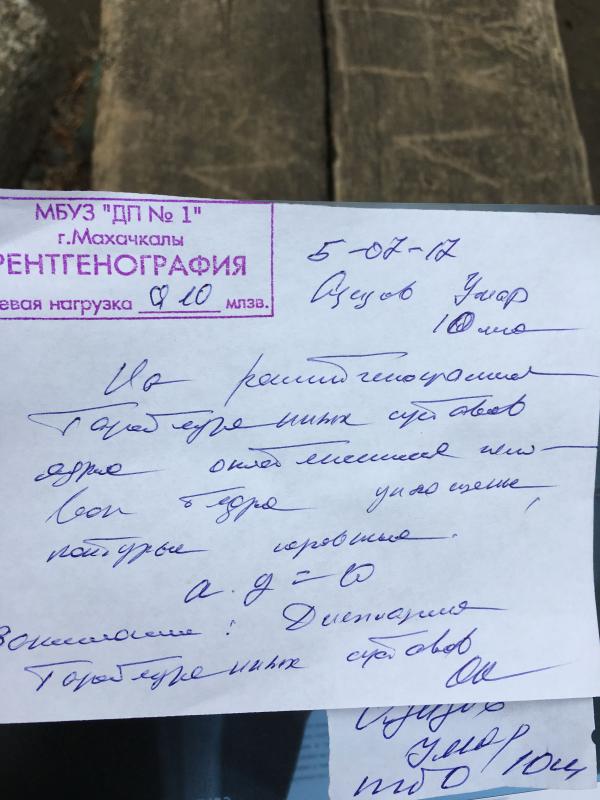 МБУЗ "ДП № 1"
г.Махачкалы
РЕНТГЕНОГРАФИЯ
евая нагрузка 0,10 млзв.
5-07-17
Умар
10 мес
На рентгенограмме
тазобедренных суставов
ядра окостенения голо-
вок бедра уплощены,
контуры неровные.
Заключение: Дисплазия
тазобедренных суставов
Умар
тбс 10м